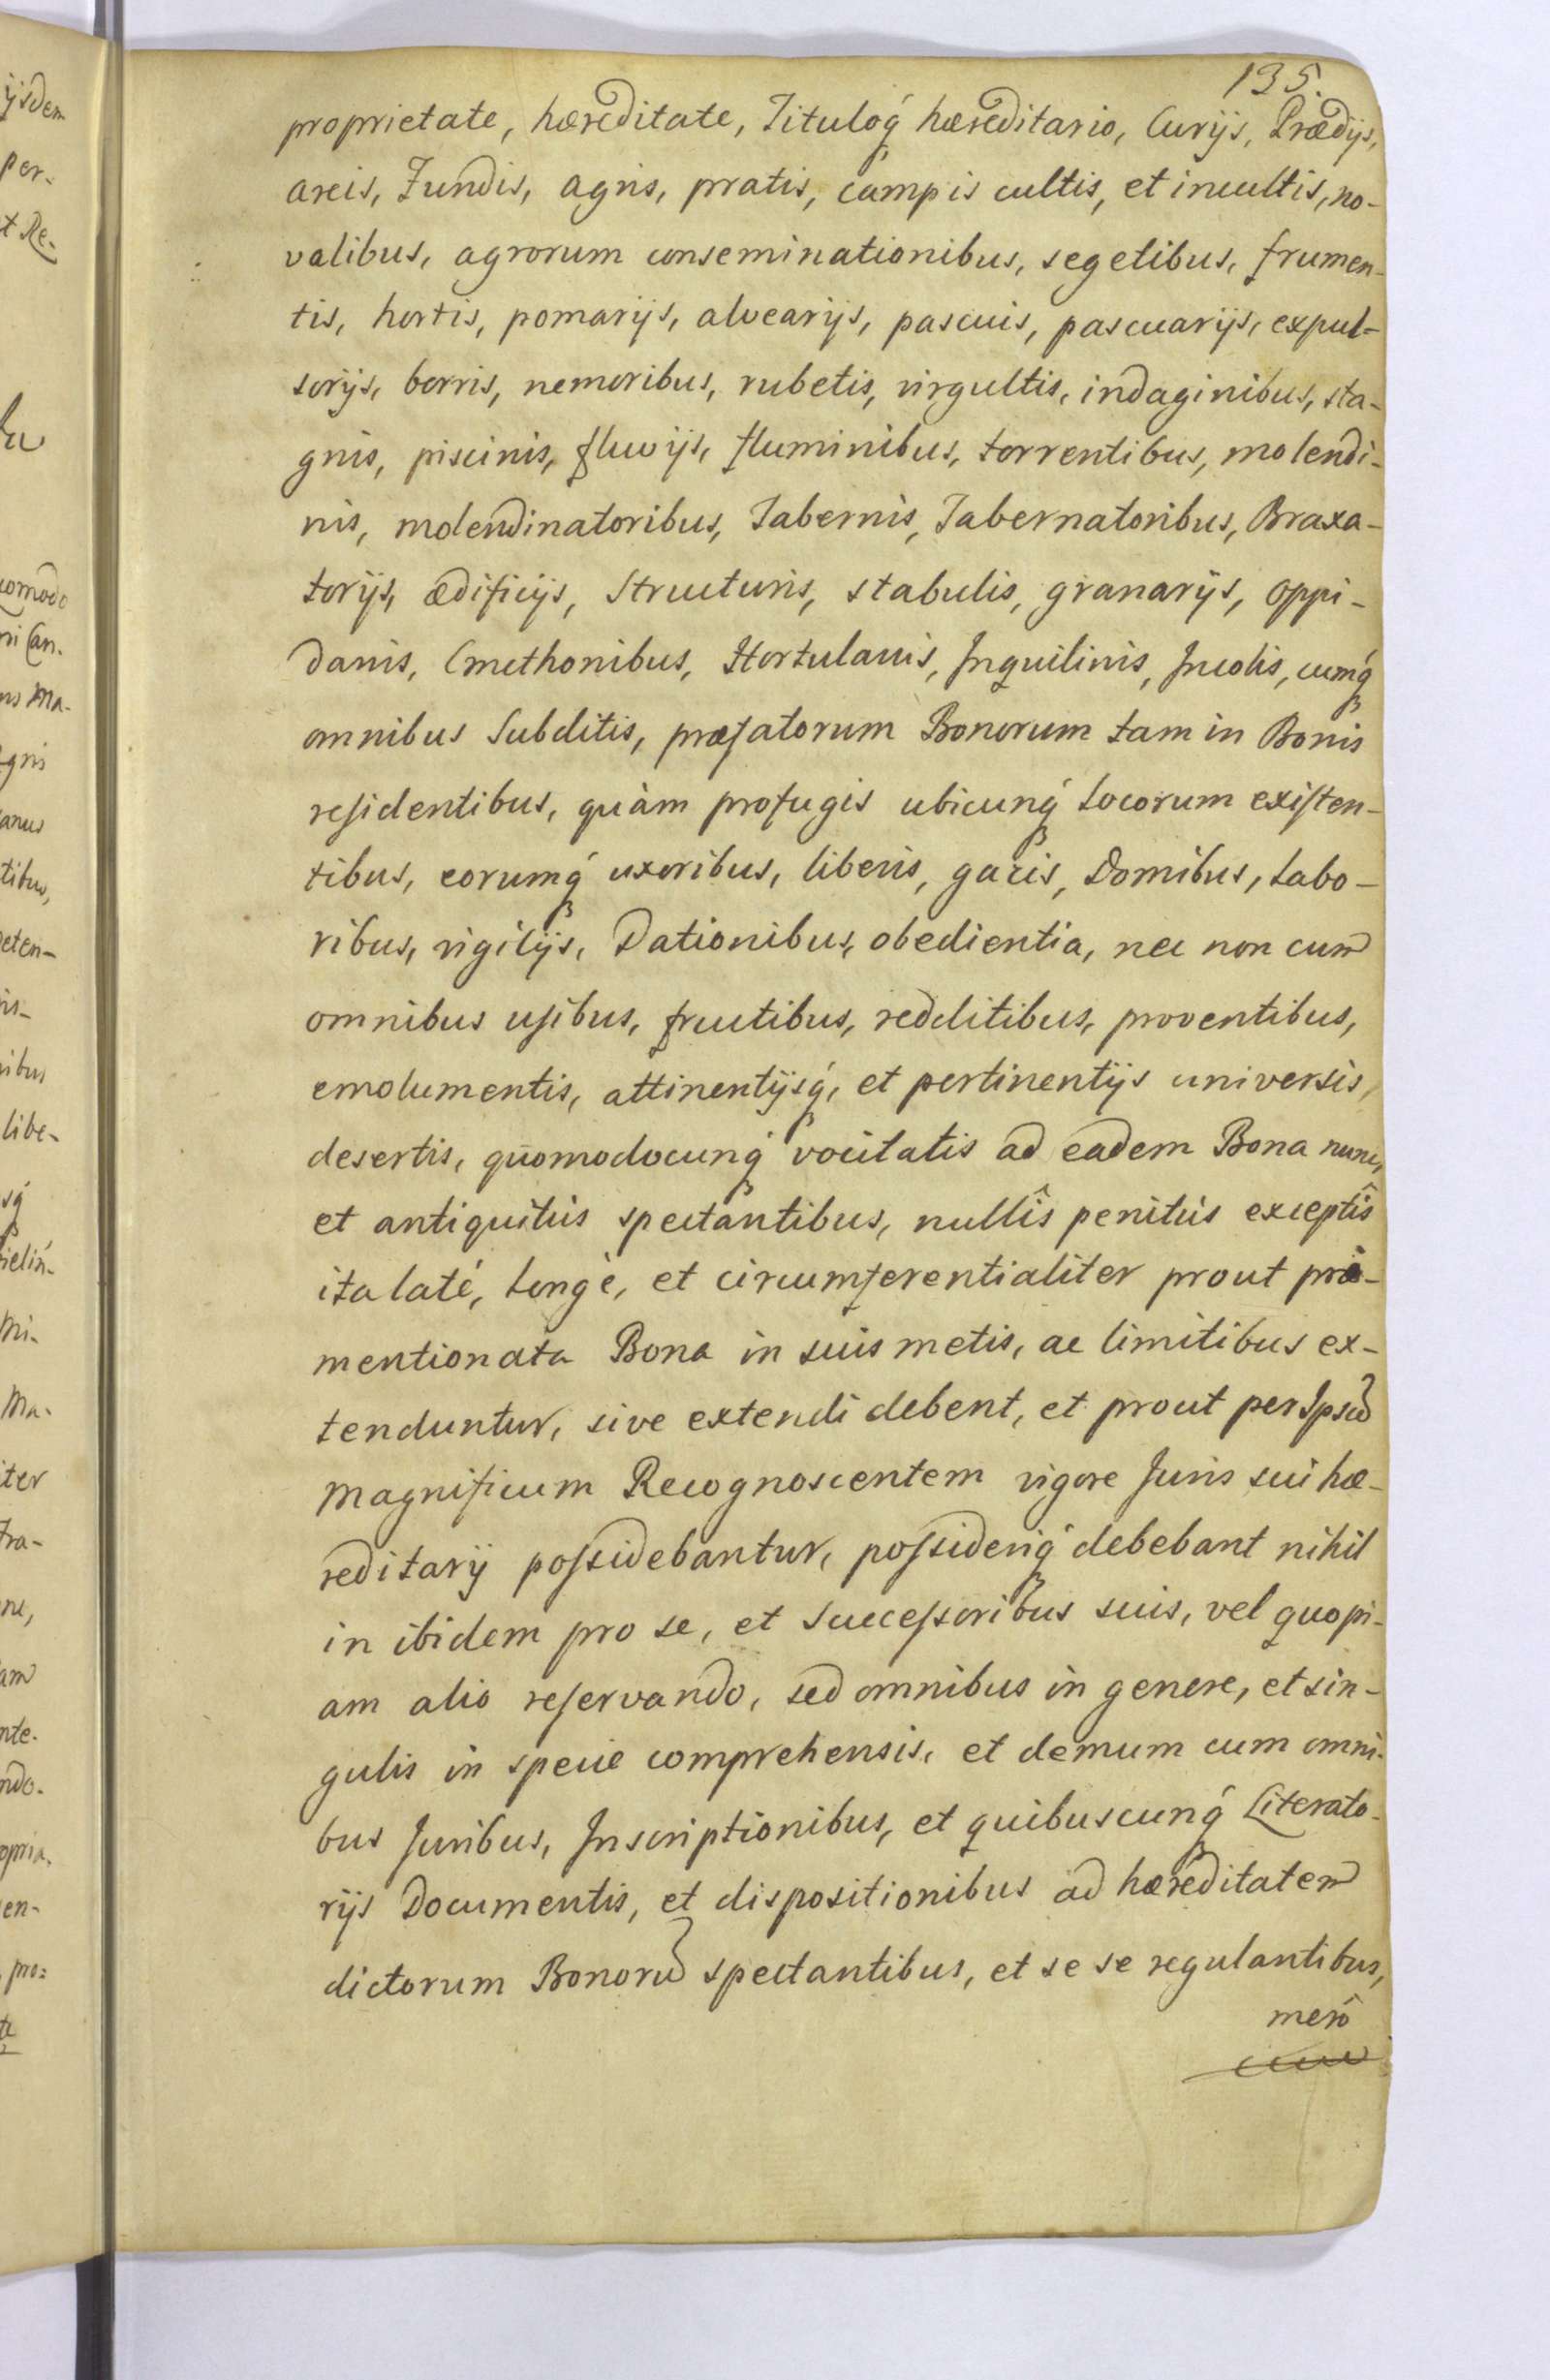 135.
proprietate, hæreditate, Tituloq́ hæreditario, Curijs, Prædijs,
areis, Fundis, agris, pratis, campis cultis, et incultis, no-
valibus, agrorum conseminationibus, segetibus, frumen-
tis, hortis, pomarijs, alvearijs, pascuis, pascuarijs, expul-
sorijs, borris, nemoribus, rubetis, virgultis, indaginibus, sta-
gnis, piscinis, fluvijs, fluminibus, torrentibus, molendi-
nis, molendinatoribus, Tabernis, Tabernatoribus, Braxa-
torijs, ædificijs, Structuris, stabulis, granarijs, oppi-
danis, Cmethonibus, Hortulanis, Inquilinis, Incolis, cumq́
omnibus Subditis, præfatorum Bonorum tam in Bonis
residentibus, quàm profugis ubicunq́ locorum existen-
tibus, eorumq́ uxoribus, liberis, gazis, Domibus, labo-
ribus, vigilijs, Dationibus, obedientia, nec non cum
omnibus usibus, fructibus, redditibus, proventibus,
emolumentis, attinentijsq́, et pertinentijs universis,
desertis, quomodocunq́ vocitatis ad eadem Bona nunc,
et antiquitùs spectantibus, nullîs penitùs exceptîs
ita laté, longè, et circumferentialiter prout præ-
mentionata Bona in suis metis, ac limitibus ex-
tenduntur, sive extendi debent, et prout per Ipsu͂
Magnificum Recognoscentem vigore Juris sui hæ-
reditarij possidebantur, possideriq́ debebant nihil
in ibidem pro se, et Successoribus suis, vel quopi-
am alio reservando, sed omnibus in genere, et sin-
gulis in specie comprehensis, et demum cum omni-
bus Juribus, Inscriptionibus, et quibuscunq́ Literato-
rijs Documentis, et dispositionibus ad hæreditatem
dictorum Bonoru͂ spectantibus, et se se regulantibus,
merô